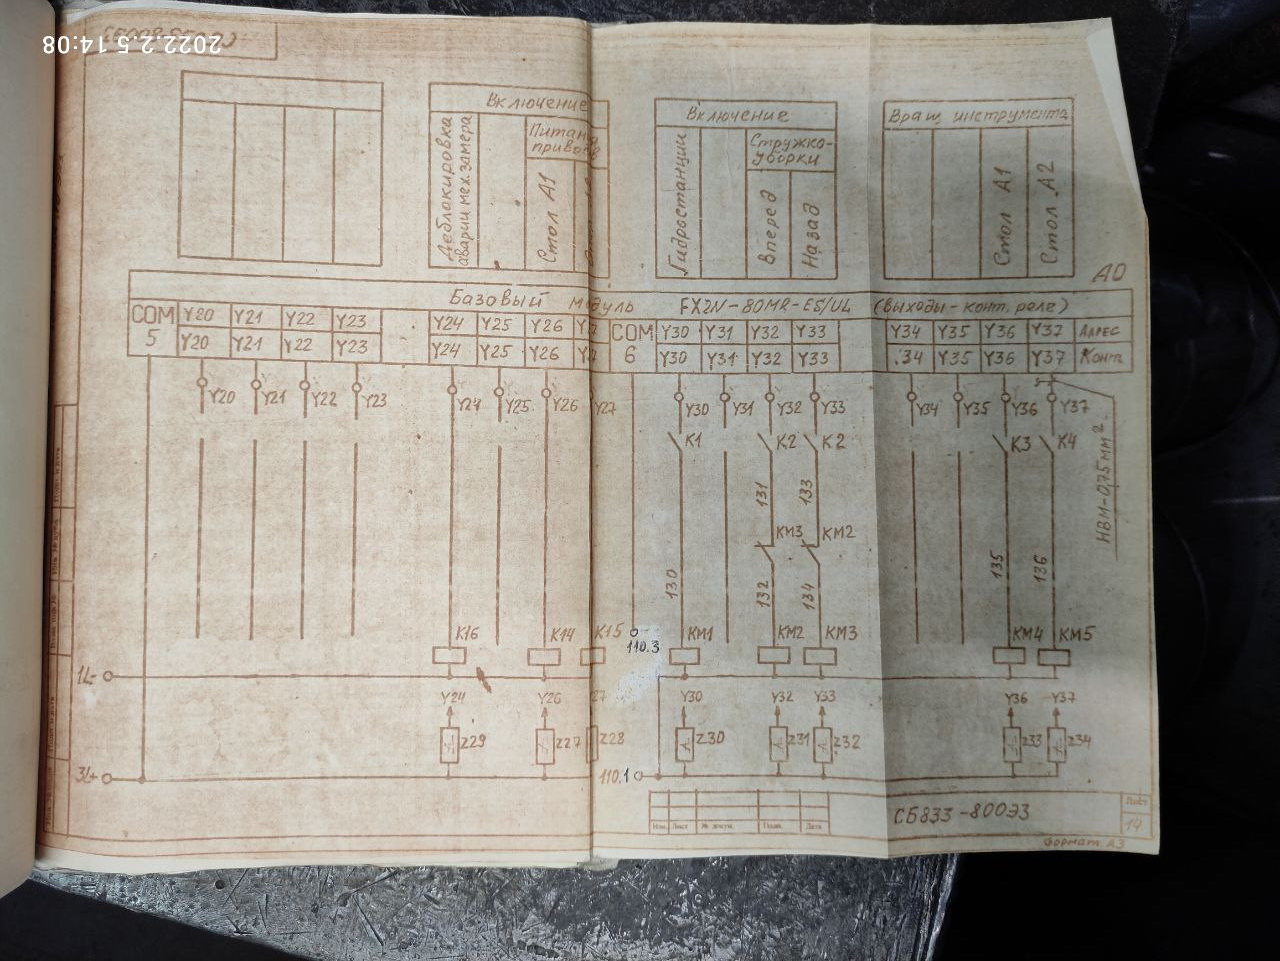 2022.2.5 14:08
Включение
Деблокировка
аварии мех.замера
Стол А1
Включение
Гидростанции
Стружко-
уборки
Вперед
Назад
Вращ инструмента
Стол А1
Стол А2
А0
Базовый модуль FX2N-80MR-ES/UL (выходы-конт. реле)
COM 5 Y20 Y21 Y22 Y23 Y24 Y25 Y26 COM 6 Y30 Y31 Y32 Y33 Y34 Y35 Y36 Y37 Адрес
Y20 Y21 Y22 Y23 Y24 Y25 Y26 Y30 Y31 Y32 Y33 .34 Y35 Y36 Y37 Конт
Y20 Y21 Y22 Y23 Y24 Y25 Y26 Y27 Y30 Y31 Y32 Y33 Y34 Y35 Y36 Y37
K1 K2 K2 K3 K4
НВМ-0,75мм²
131 133
KM3 KM2
130 132 134 135 136
K16 K14 K15 KM1 KM2 KM3 KM4 KM5
110.3
1L-
Y24 Y26 27 Y30 Y32 Y33 Y36 Y37
Z29 Z27 Z28 Z30 Z31 Z32 Z33 Z34
3L+ 110.1
СБ833-800Э3
Лист
14
Изм. Лист № докум. Подп. Дата
Формат А3